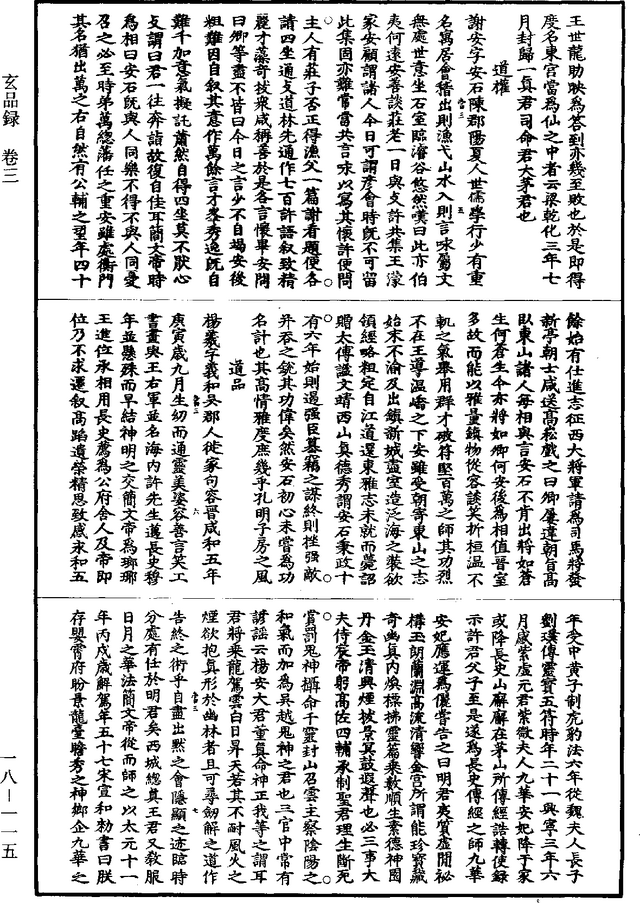 玄品録　卷三
王世龍助映爲答對亦幾至敗也於是即得
度名東宮當爲仙之中者云梁乾化三年七
月封歸一眞君司命君大茅君也
道權
謝安字安石陳郡陽夏人世儒學行少有重
名寓居會稽出則漁弋山水入則言咏屬文
無處世意坐石室臨濬谷悠然嘆曰此亦伯
夷何遠安善談莊老一日與支許共集王濛
家安顧謂諸人今日可謂彥會時旣不可留
此集固亦難常當共言咏以寫其懷許便問
主人有莊子否正得漁父一篇謝看題便各
請四坐通支道林先通作七百許語叙致精
麗才藻奇拔衆咸稱善於是各言懷畢安問
曰卿等盡不皆曰今日之言少不自竭安後
粗難因自叙其意作萬餘言才峯秀逸旣自
難干加意氣擬託蕭然自得四坐莫不猒心
支謂曰君一往奔詣故復自佳耳簡文帝時
爲相曰安石旣與人同樂不得不與人同憂
召之必至時弟萬總藩任之重安雖處衡門
其名猶出萬之右自然有公輔之望年四十
餘始有仕進志征西大將軍請爲司馬將發
新亭朝士咸送高崧戲之曰卿屢違朝旨高
臥東山諸人每相與言安石不肯出將如蒼
生何蒼生今亦將如卿何安後爲相值晉室
多故而能以雅量鎮物從容談笑折桓溫不
軌之氣舉用群才破符堅百萬之師其功烈
不在王導溫嶠之下安雖受朝寄東山之志
始末不渝及出鎮新城盡室造泛海之裝欲
須經略粗定自江道還東雅志未就而薨詔
贈太傅謚文靖西山眞德秀謂安石秉政十
有六年始則遏强臣簒竊之謀終則挫强敵
并吞之銳其功偉矣然安石初心未嘗爲功
名計也其高情雅度庶幾乎孔明子房之風
道品
楊羲字羲和吳郡人徙家句容晉咸和五年
庚寅歲九月生幼而通靈美姿容善言笑工
書畫與王右軍並名海内許先生邁長史穆
年並懸殊而早結神明之交簡文帝爲瑯琊
王進位丞相用長史薦爲公府舍人及帝即
位乃不求運叙高蹈遺榮精思致感永和五
年受中黃子制虎豹法六年從魏夫人長子
劉璞傳靈寶五符時年二十一興寧三年六
月感紫虛元君紫微夫人九華安妃降于家
或降長史山廨廨在茅山所傳經誥轉使録
示許君父子至是遂爲長史傳經之師九華
安妃應運爲儷嘗告之曰明君夷質虛閒祕
構玉朗蘭淵高流清響金宮所謂能珍寶藏
奇幽眞内煥標拂靈篇乘數順生素德神園
丹金玉清興煙披景冥鼓遐聲也必三事大
夫侍宸帝躬高佐四輔承制聖君理生斷死
賞罰鬼神攝命千靈封山召雲主察陰陽之
和氣而加爲吳越鬼神之君也三官中常有
諺謡云楊安大君董眞命神正我等之謂耳
君將乘龍駕雲白日昇天若其不耐風火之
煙欲抱眞形於幽林者且可尋劍解之道作
告終之術乎自盡出黙之會隱顯之迹臨時
分處有任於明君矣西城總眞王君又敎服
日月之華法簡文帝從而師之以太元十一
年丙戌歲解駕年五十七宋宣和勅書曰朕
存嬰霄府盼景龍臺瞻秀之神鄉企九華之
一八－一一五